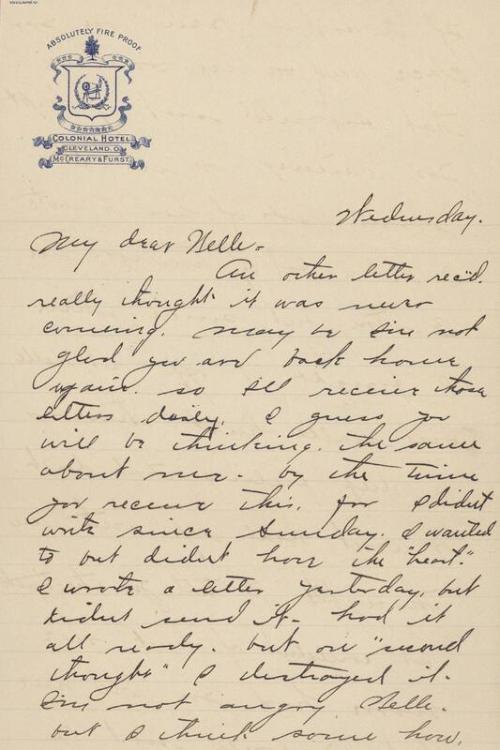 ABSOLUTELY FIRE PROOF
COLONIAL HOTEL
CLEVELAND, O.
MCCREARY & FURST.
Wednesday.
My dear Nelle-
An other letter rec'd.
really thought it was never
comeing. may be I'm not
glad you are back home
again. so I'll receive those
letters daily. I guess you
will be thinking. the same
about me. by the time
you receive this. for I didn't
write since Sunday. I wanted
to but didn't have the "heart."
I wrote a letter yesterday, but
didnt send it- had it
all ready. but on "second
thought" I destroyed it.
I'm not angry Nelle.
but I think some how.